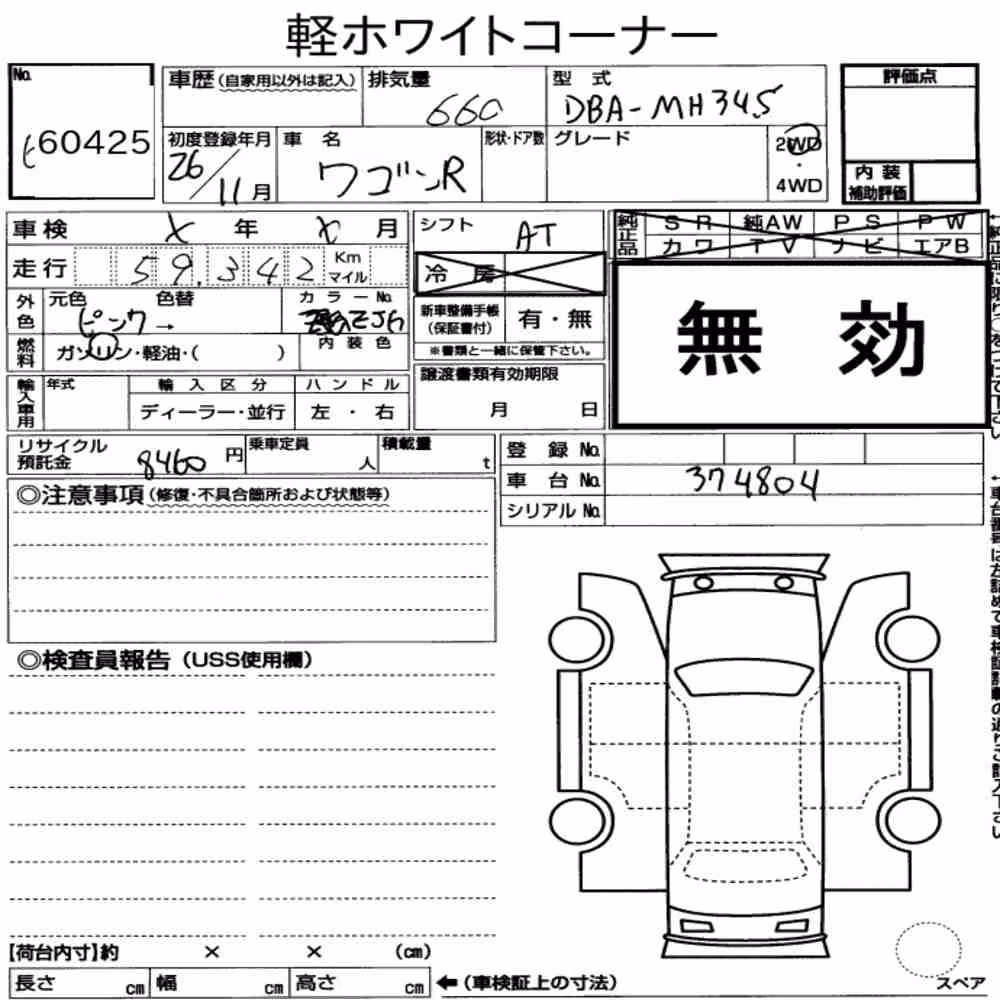 軽ホワイトコーナー
No.
60425
車歴(自家用以外は記入)
排気量
660
型 式
DBA-MH34S
評価点
初度登録年月
26/11月
車 名
ワゴンR
形状・ドア数
グレード
2WD
・
4WD
内 装
補助評価
車検 x 年 x 月
シフト
AT
純正品
S R 純AW P S P W
カ ワ T V ナ ビ エアB
走行 59,342 Km マイル
冷 房
無 効
外色
元色 色替
ピンク→
カラーNo.
ZJG
内 装 色
新車整備手帳
(保証書付)
有・無
※書類と一緒に保管下さい。
燃料
ガソリン・軽油・( )
輸入車用
年式
輸 入 区 分
ディーラー・並行
ハ ン ド ル
左 ・ 右
譲渡書類有効期限
月 日
リサイクル
預託金
8460 円
乗車定員
人
積載量
t
登 録 No.
車 台 No. 374804
シリアル No.
◎注意事項(修復・不具合箇所および状態等)
◎検査員報告(USS使用欄)
【荷台内寸】約 × × (cm)
長さ cm 幅 cm 高さ cm ←(車検証上の寸法)
スペア